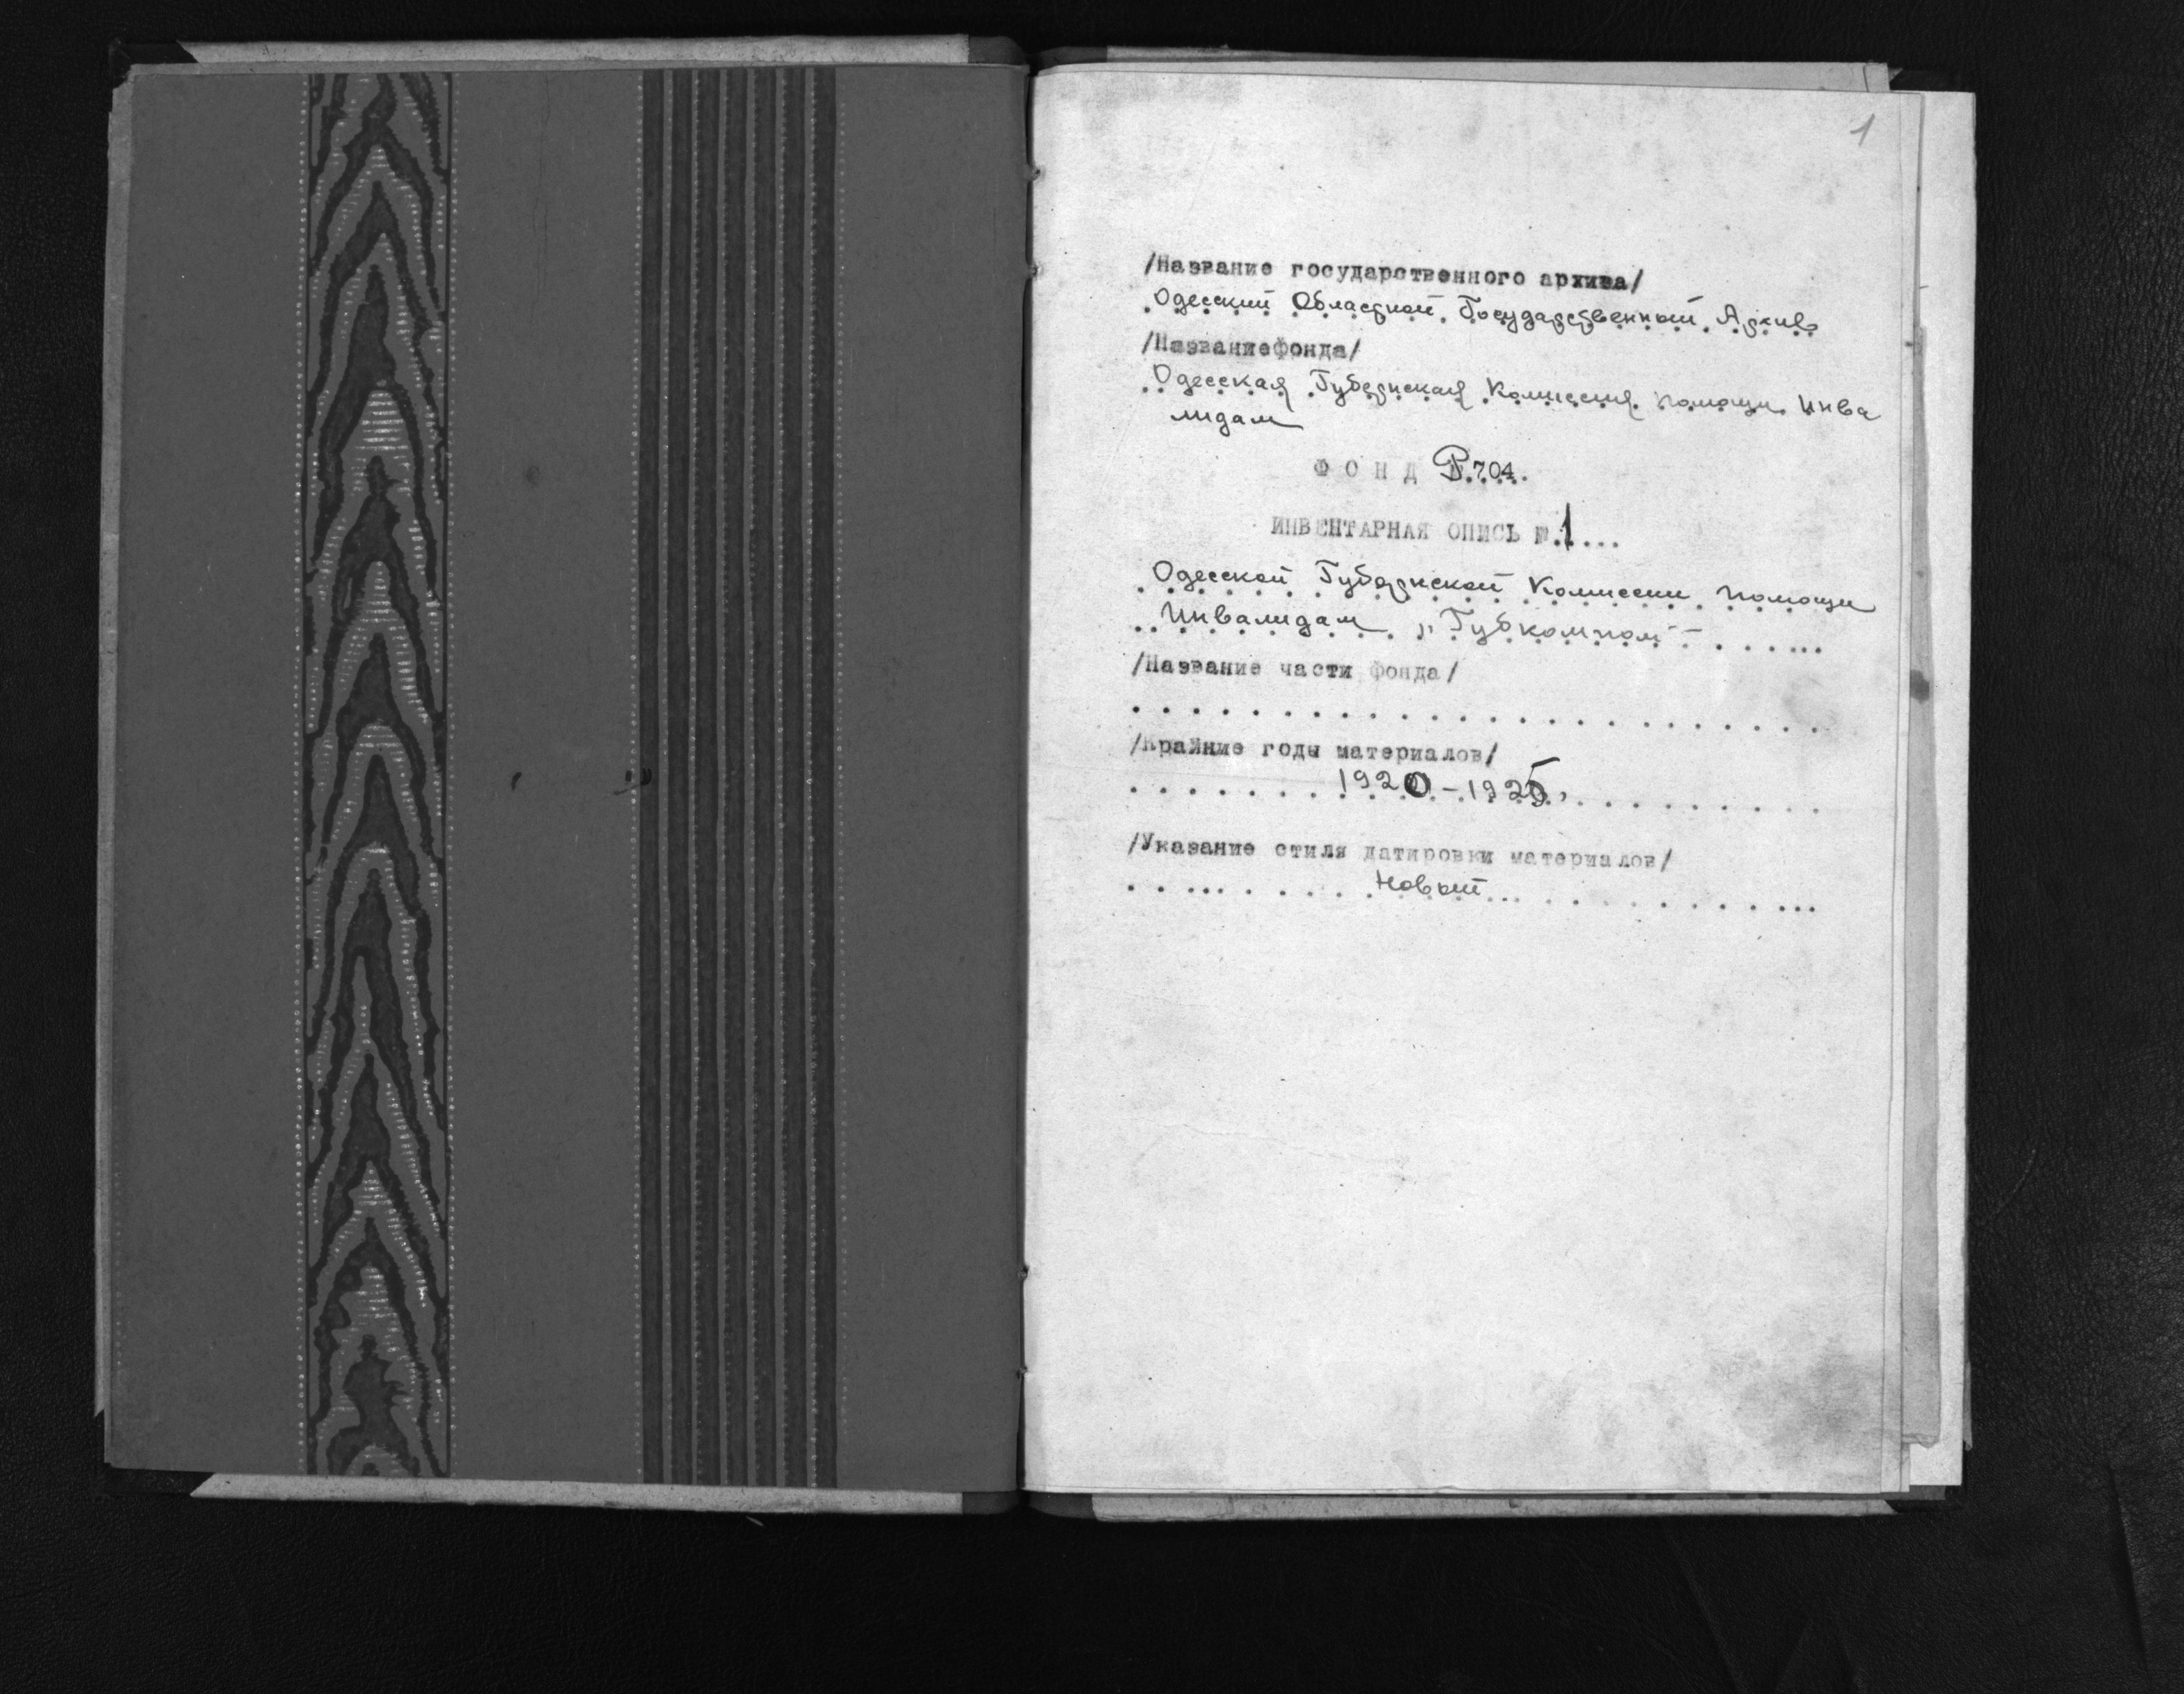 1
/Название государственного архива/
Одесский Областной Государственный Архив
/Названиефонда/
Одесская Губернская Комиссия помощи Инва
лидам
ФОНД Р.704.
ИНВЕНТАРНАЯ ОПИСЬ № 1...
Одесской Губернской Комиссии помощи
Инвалидам „Губкомпом"
/Название части фонда/
/Крайние годы материалов/
1920-1925
/Указание стиля датировки материалов/
Новый